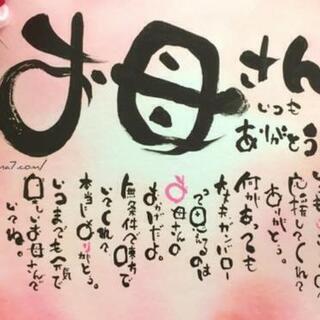 お母さん
いつも
ありがとう
応援してくれて
ありがとう。
何があっても
大丈夫ガンバロー
って思えるのは
お母さんの
おかげだよ。
無条件で味方で
いてくれて
本当にありがとう。
いつまでも元気で
お母さんで
いてね。